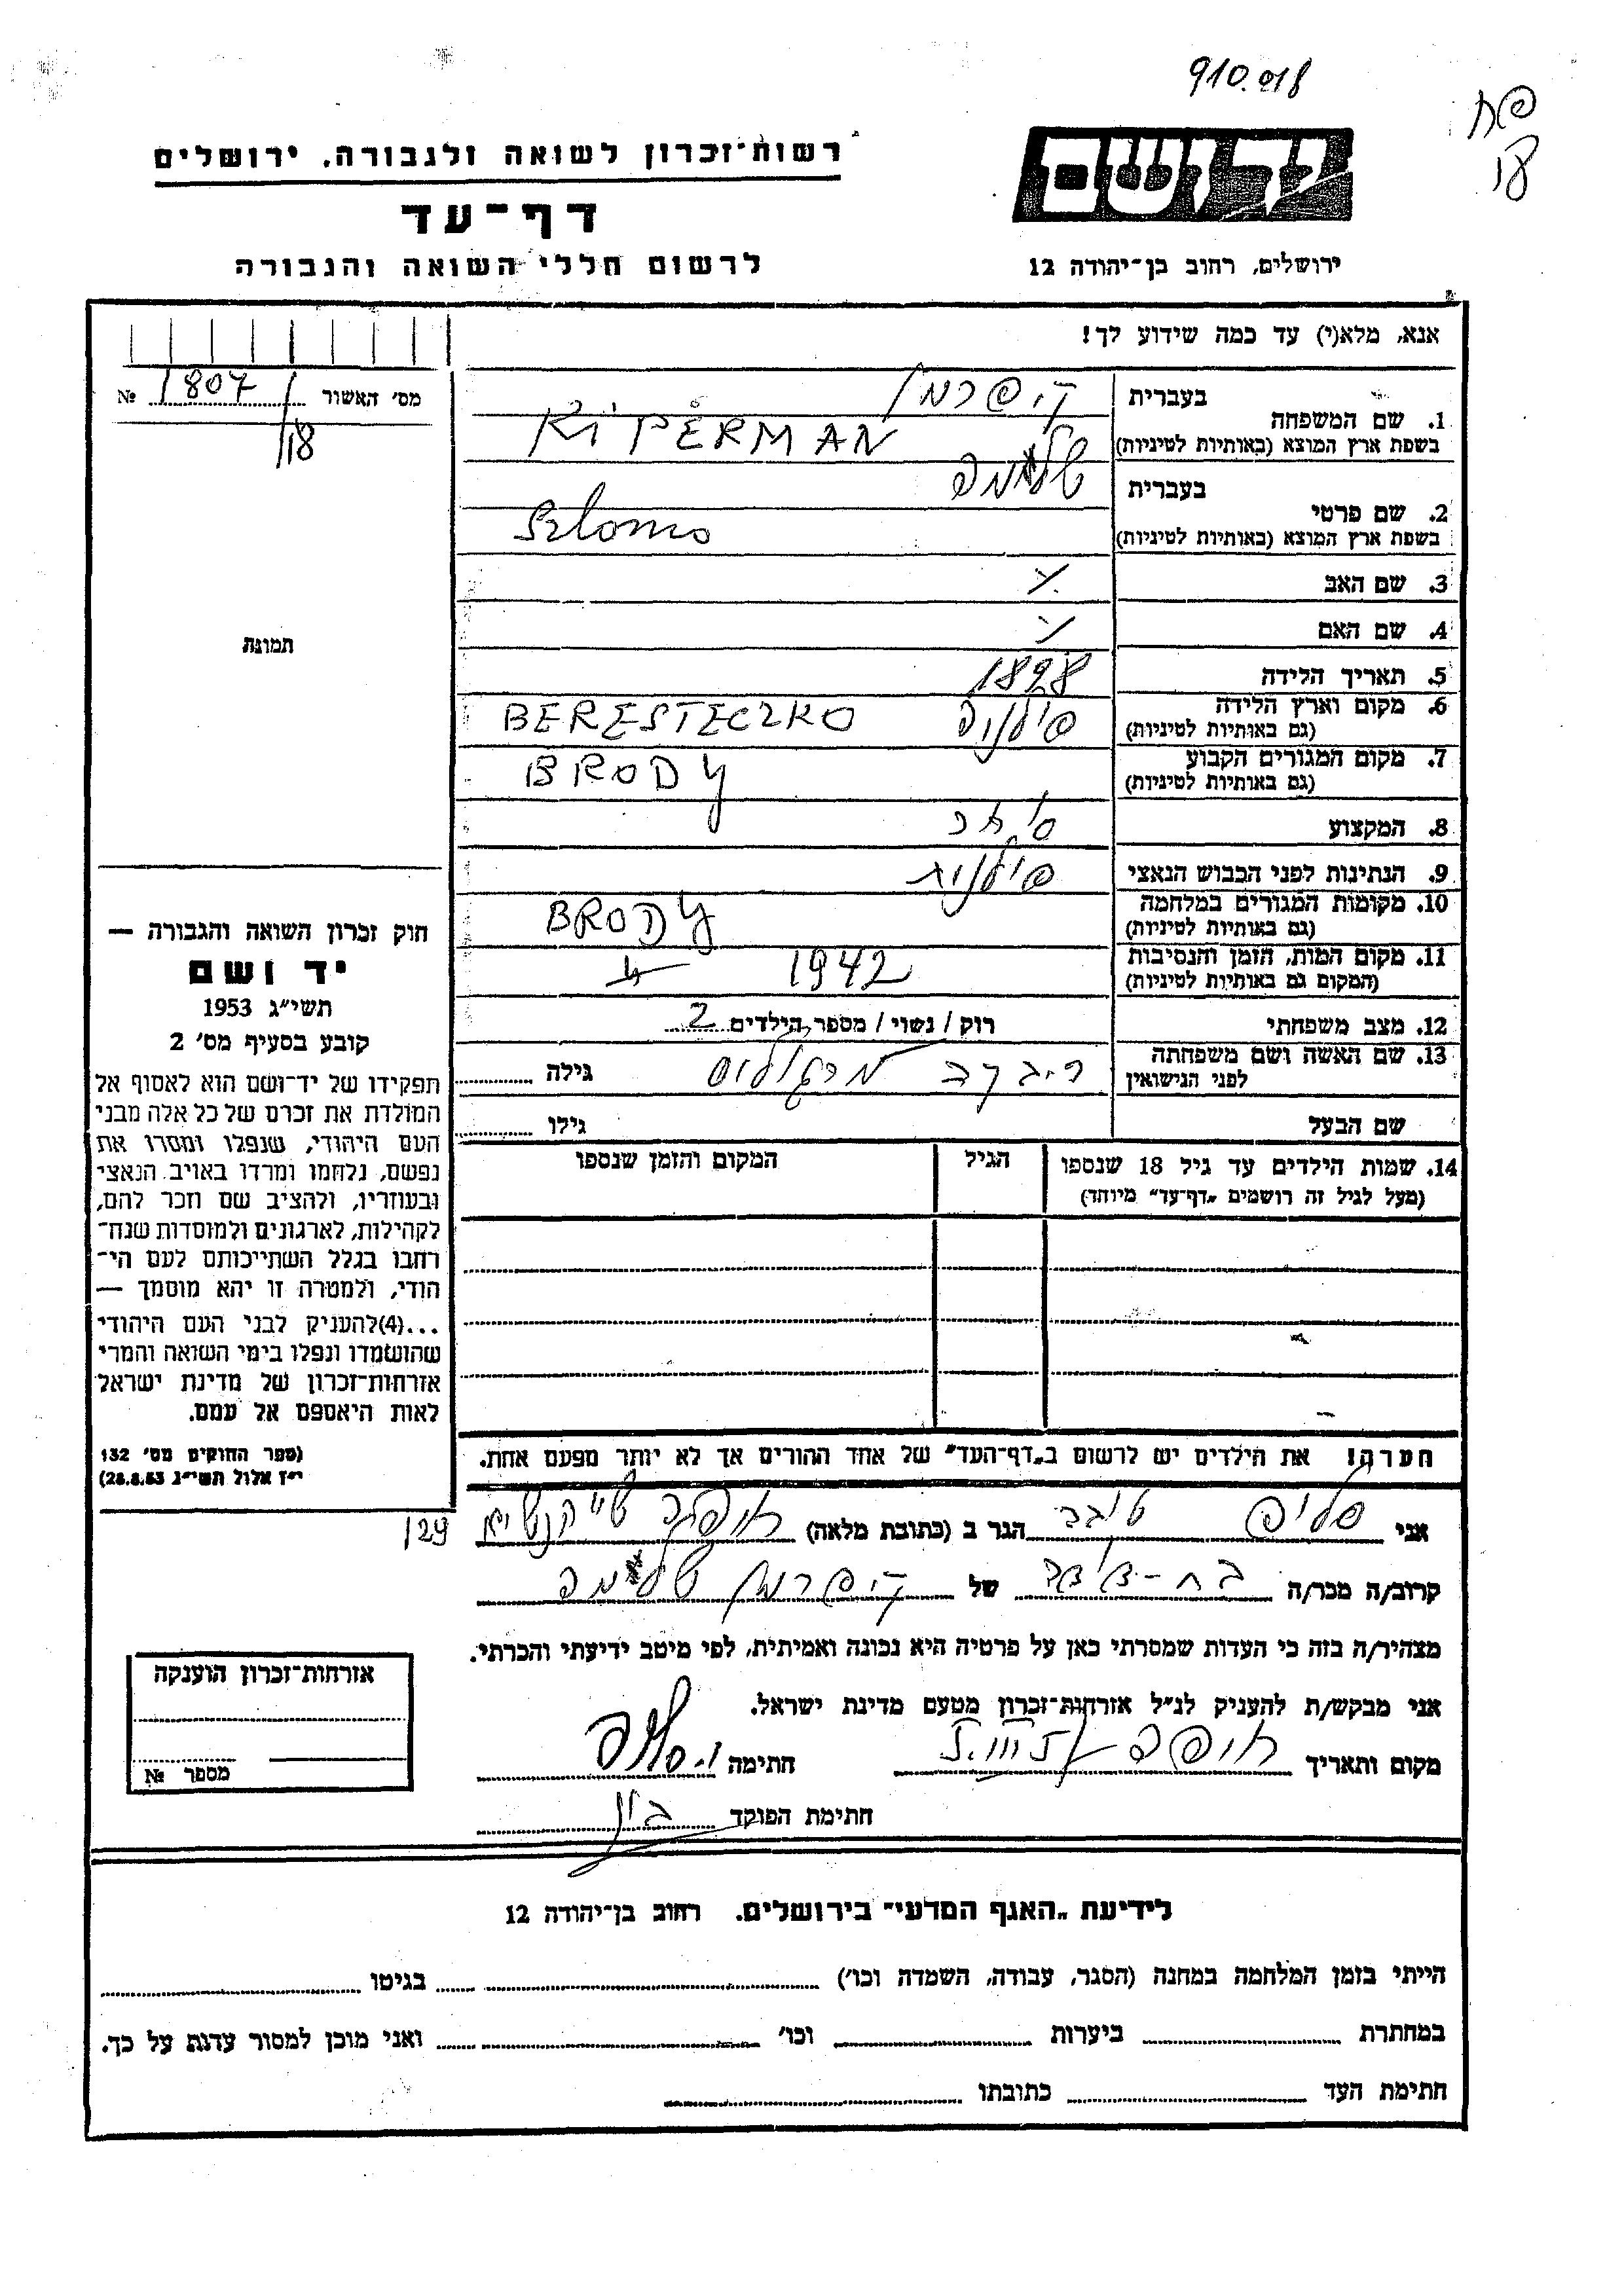 910.018
יד ושם
רשות־זכרון לשואה ולגבורה, ירושלים
דף־עד
לרשום חללי השואה והגבורה
ירושלים, רחוב בן־יהודה 12
אנא, מלא(י) עד כמה שידוע לך!
מס' האשור 1807 №
1. שם המשפחה
בעברית קיפרמן
בשפת ארץ המוצא (באותיות לטיניות) KIPERMAN
2. שם פרטי
בעברית שלמה
בשפת ארץ המוצא (באותיות לטיניות) Szlomo
3. שם האב
4. שם האם
5. תאריך הלידה 1898
6. מקום וארץ הלידה
(גם באותיות לטיניות) פולניה BERESTECZKO
7. מקום המגורים הקבוע
(גם באותיות לטיניות) BRODY
8. המקצוע סוחר
9. הנתינות לפני הכבוש הנאצי פולנית
10. מקומות המגורים במלחמה
(גם באותיות לטיניות) BRODY
11. מקום המות, הזמן והנסיבות
(המקום גם באותיות לטיניות) 1942
12. מצב משפחתי רוק / נשוי / מספר הילדים 2
13. שם האשה ושם משפחתה
לפני הנישואין רבקה מרגוליס גילה
שם הבעל גילו
14. שמות הילדים עד גיל 18 שנספו הגיל המקום והזמן שנספו
(מעל לגיל זה רושמים „דף־עד” מיוחד)
הערה! את הילדים יש לרשום ב„דף־העד” של אחד ההורים אך לא יותר מפעם אחת.
תמונה
חוק זכרון השואה והגבורה —
יד ושם
תשי״ג 1953
קובע בסעיף מס' 2
תפקידו של יד־ושם הוא לאסוף אל
המולדת את זכרם של כל אלה מבני
העם היהודי, שנפלו ומסרו את
נפשם, נלחמו ומרדו באויב הנאצי
ובעוזריו, ולהציב שם וזכר להם,
לקהילות, לארגונים ולמוסדות שנח־
רבו בגלל השתייכותם לעם הי־
הודי, ולמטרה זו יהא מוסמך —
...(4)להעניק לבני העם היהודי
שהושמדו ונפלו בימי השואה והמרי
אזרחות־זכרון של מדינת ישראל
לאות היאספם אל עמם.
(ספר החוקים מס' 132
י״ז אלול תשי״ג 28.8.53)
אני טובה הגר ב (כתובת מלאה) חיפה 129
קרוב/ה מכר/ה בת-דודה של קיפרמן שלמה
מצהיר/ה בזה כי העדות שמסרתי כאן על פרטיה היא נכונה ואמיתית, לפי מיטב ידיעתי והכרתי.
אני מבקש/ת להעניק לנ״ל אזרחות־זכרון מטעם מדינת ישראל.
מקום ותאריך חיפה חתימה
חתימת הפוקד
אזרחות־זכרון הוענקה
מספר №
לידיעת „האגף המדעי” בירושלים. רחוב בן־יהודה 12
הייתי בזמן המלחמה במחנה (הסגר, עבודה, השמדה וכו') בגיטו
במחתרת ביערות וכו' ואני מוכן למסור עדות על כך.
חתימת העד כתובתו